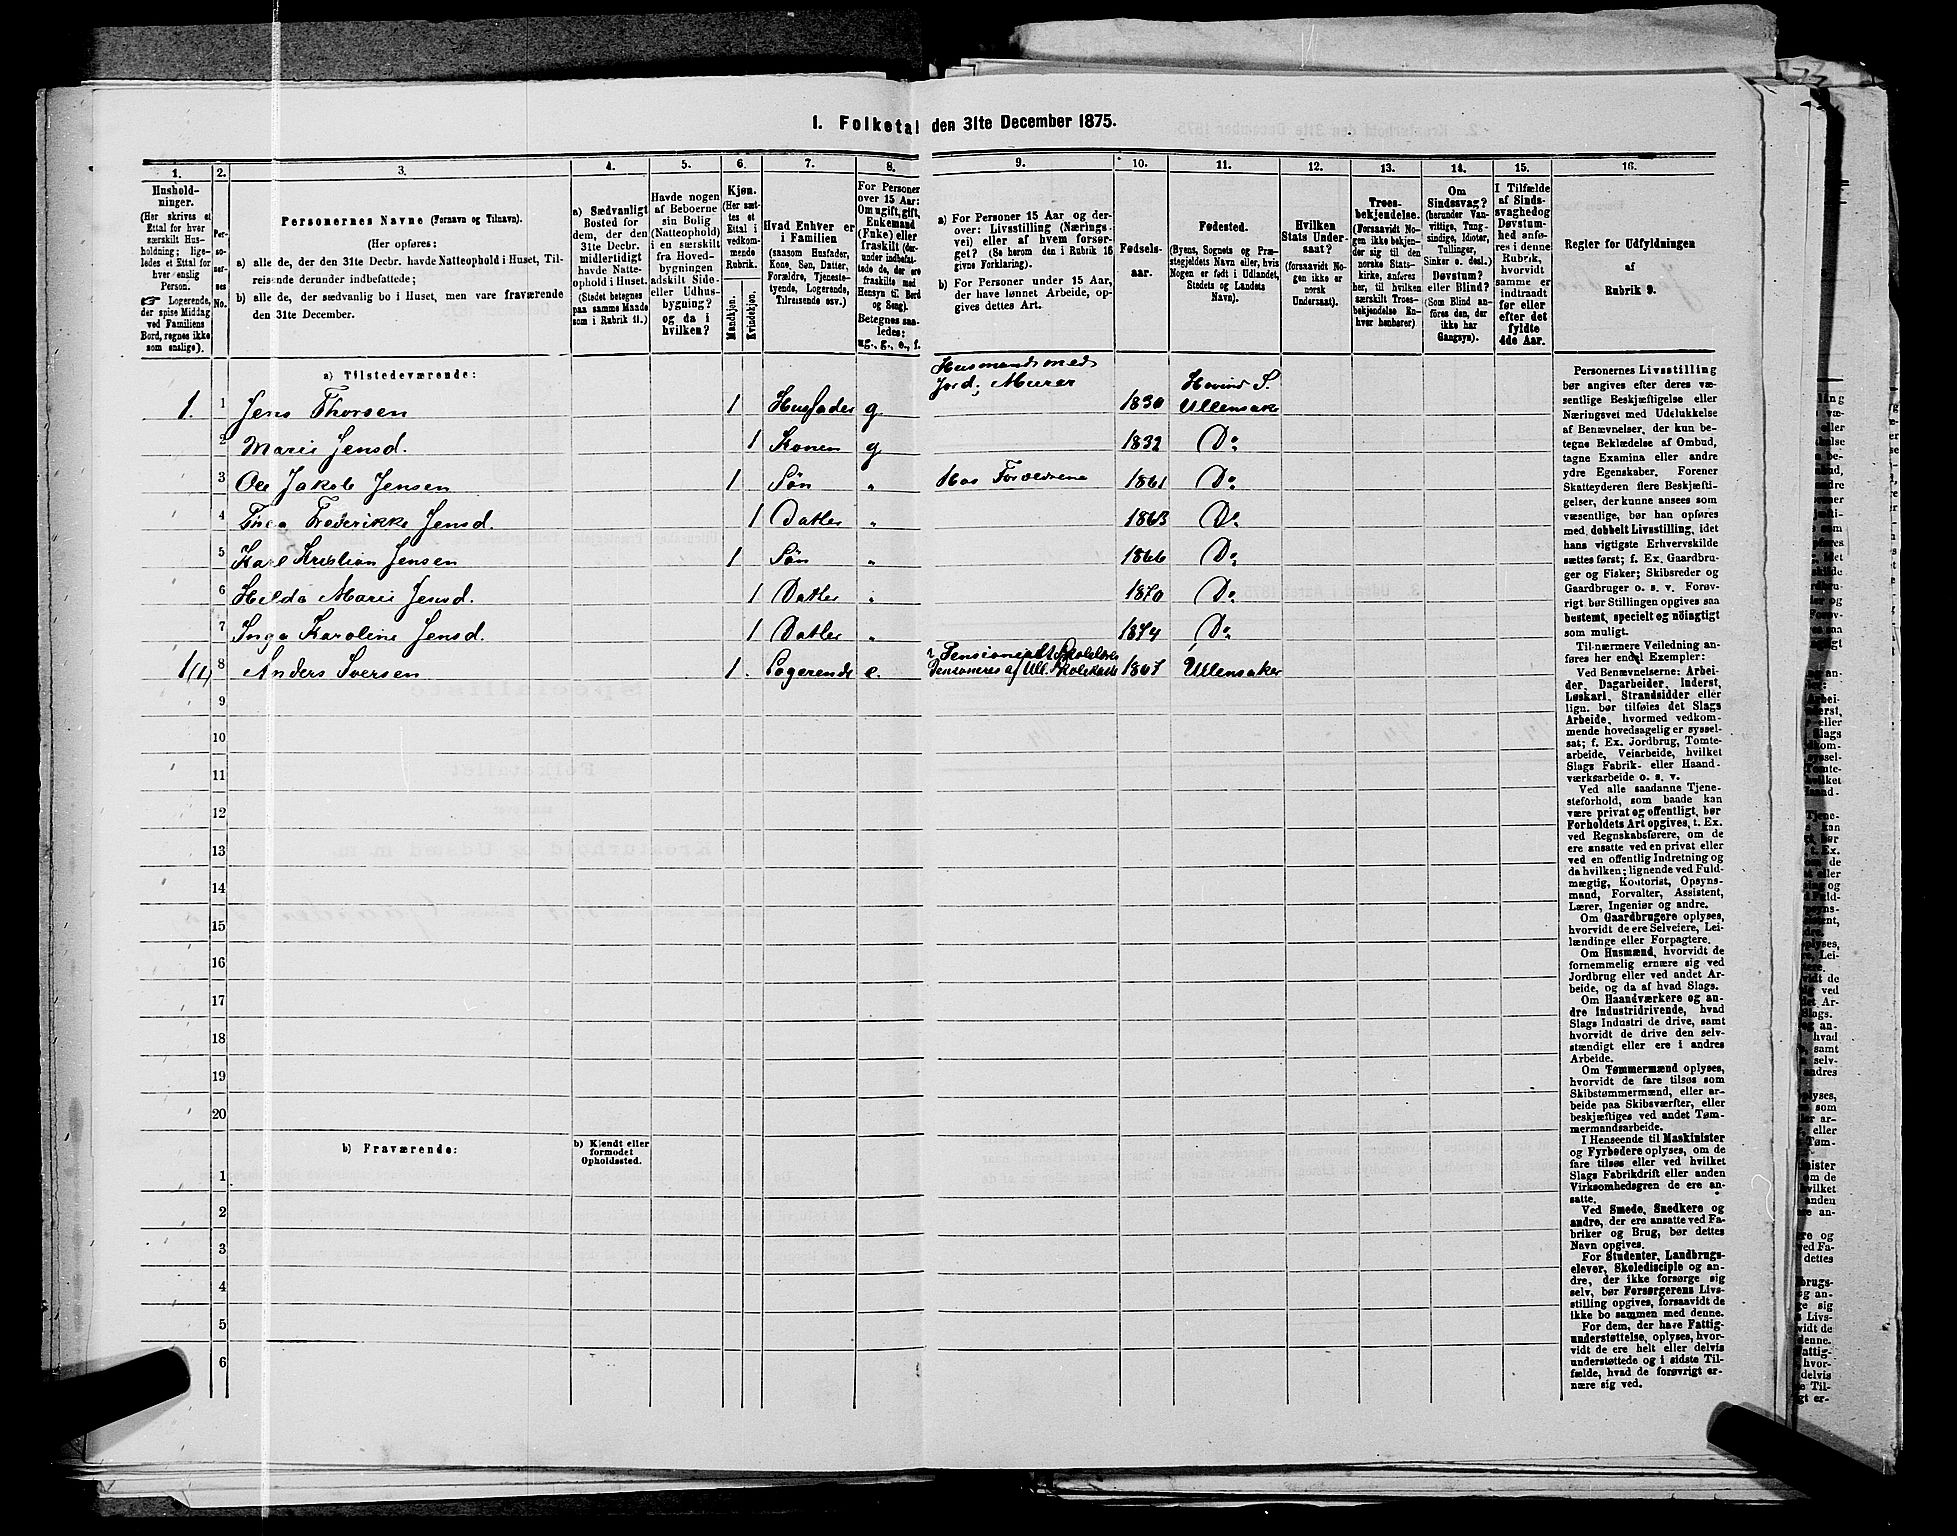 1. Folketal den 31te December 1875.
1.
Hushold-
ninger.
(Her skrives et
Ettal for hver
særskilt Hus-
holdning; lige-
ledes et Ettal for
hver enslig
Person.
☞ Logerende,
der spise Middag
ved Familiens
Bord, regnes ikke
som enslige).
2.
Per-
so-
ner-
nes
No.
3.
Personernes Navne (Fornavn og Tilnavn).
(Her opføres:
a) alle de, der den 31te Decbr. havde Natteophold i Huset, Til-
reisende derunder indbefattede;
b) alle de, der sædvanlig bo i Huset, men vare fraværende
den 31te December.
4.
a) Sædvanligt
Bosted for
dem, der den
31te Decbr.
midlertidigt
havde Natte-
ophold i Huset.
(Stedet betegnes
paa samme Maade
som i Rubrik 11.)
5.
Havde nogen
af Beboerne
sin Bolig
(Natteophold)
i en særskilt
fra Hoved-
bygningen
adskilt Side-
eller Udhus-
bygning?
og da i
hvilken?
6.
Kjøn.
(Her sæt-
tes et
Ettal i
vedkom-
mende
Rubrik.
Mandkjøn.
Kvindekjøn.
7.
Hvad Enhver er
i Familien
(saasom Husfader,
Kone, Søn, Datter,
Forældre, Tjeneste-
tyende, Logerende,
Tilreisende osv.)
8.
For Personer
over 15 Aar:
Om ugift, gift,
Enkemand
(Enke) eller
fraskilt (der-
under indbefat-
tede de, der ere
fraskilte med
Hensyn til Bord
og Seng).
Betegnes saa-
ledes:
ug., g., e., f.
9.
a) For Personer 15 Aar og der-
over: Livsstilling (Nærings-
vei) eller af hvem forsør-
get? (Se herom den i Rubrik 16
givne Forklaring).
b) For Personer under 15 Aar,
der have lønnet Arbeide, op-
gives dettes Art.
10.
Fødsels-
aar.
11.
Fødested.
(Byens, Sognets og Præ-
stegjeldets Navn eller, hvis
Nogen er født i Udlandet,
Stedets og Landets
Navn).
12.
Hvilken
Stats Under-
saat?
(forsaavidt No-
gen ikke er
norsk
Undersaat).
13.
Troes-
bekjendelse.
(Forsaavidt No-
gen ikke bekjen-
der sig til den
norske Stats-
kirke, anføres
her, til hvilken
særskilt Troes-
bekjendelse En-
hver henhører)
14.
Om
Sindssvag?
(herunder Van-
vittige, Tung-
sindige, Idioter,
Tullinger,
Sinker o. desl.)
Døvstum?
eller Blind?
(Som Blind an-
føres den, der
ikke har
Gangsyn).
15.
I Tilfælde
af Sinds-
svaghed og
Døvstum-
hed anfø-
res i denne
Rubrik,
hvorvidt
samme er
indtraadt
før eller
efter det
fyldte
4de Aar.
16.
Regler for Udfyldningen
af
Rubrik 9.
a) Tilstedeværende:
Husmand med
1. 1 Jens Thorsen 1 Husfader g Jord, Murer 1830 Hovind S. Ullensaker
2 Marie Jensd. 1 Konen g 1832 Do
3 Ole Jakob Jensen 1 Søn " Hos Forældrene 1861 Do
4 Inga Frederikke Jensd. 1 Datter " 1863 Do
5 Karl Kristian Jensen 1 Søn " 1866 Do
6 Hilda Marie Jensd. 1 Datter " 1870 Do
7 Inga Karoline Jensd. 1 Datter " 1874 Do
1(1) 8 Anders Iversen 1. Logerende e. Pensioneret Skolelærer Pensioneres af Ull. Skolekasse 1807 Ullensaker
9
10
11
12
13
14
15
16
17
18
19
20
b) Fraværende:
b) Kjendt eller
formodet
Opholdssted.
1
2
3
4
5
6
Personernes Livsstilling
bør angives efter deres væ-
sentlige Beskjæftigelse eller
Næringsvei med Udelukkelse
af Benævnelser, der kun be-
tegne Beklædelse af Ombud,
tagne Examina eller andre
ydre Egenskaber. Forener
Skatteyderen flere Beskjæfti-
gelser, der kunne ansees som
væsentlige, bør han opføres
med dobbelt Livsstilling, idet
hans vigtigste Erhvervskilde
sættes først; f. Ex. Gaardbru-
ger og Fisker; Skibsreder og
Gaardbruger o. s. v. Forøv-
rigt bør Stillingen opgives saa
bestemt, specielt og nöiagtigt
som muligt.
Til nærmere Veiledning an-
føres her endel Exempler:
Ved Benævnelserne: Arbei-
der, Dagarbeider, Inderst,
Løskarl, Strandsidder eller
lign. bør tilføies det Slags
Arbeide, hvormed vedkom-
mende hovedsagelig er syssel-
sat; f. Ex. Jordbrug, Tomte-
arbeide, Veiarbeide, hvilket
Slags Fabrik- eller Haand-
værksarbeide o. s. v.
Ved alle saadanne Tjene-
steforhold, som baade kan
være privat og offentligt, bør
Forholdets Art opgives, t. Ex.
ved Regnskabsførere, om de
ere ansatte ved en privat eller
ved en offentlig Indretning og
da hvilken; lignende ved Fuld-
mægtig, Kontorist, Opsyns-
mand, Forvalter, Assistent,
Lærer, Ingeniør og andre.
Om Gaardbrugere oplyses,
hvorvidt de ere Selveiere, Lei-
lændinge eller Forpagtere.
Om Husmænd, hvorvidt de
fornemmelig ernære sig ved
Jordbrug eller ved andet Ar-
beide, og da af hvad Slags.
Om Haandværkere og an-
dre Industridrivende, hvad
Slags Industri de drive, samt
hvorvidt de drive den selv-
stændigt eller ere i andres
Arbeide.
Om Tømmermænd oplyses,
hvorvidt de fare tilsøs som
Skibstømmermænd, eller ar-
beide paa Skibsværfter, eller
beskjæftiges ved andet Tøm-
mermandsarbeide.
I Henseende til Maskinister
og Fyrbødere oplyses, om de
fare tilsøs eller ved hvilket
Slags Fabrikdrift eller anden
Virksomhedsgren de ere an-
satte.
Ved Smede, Snedkere og
andre, der ere ansatte ved Fa-
briker og Brug, bør dettes
Navn opgives.
For Studenter, Landbrugs-
elever, Skoledisciple og an-
dre, der ikke forsørge sig
selv, bør Forsørgerens Livs-
stilling opgives, forsaavidt de
ikke bo sammen med denne.
For dem, der have Fattig-
understøttelse, oplyses, hvor-
vidt de ere helt eller delvis
understøttede og i sidste Til-
fælde, hvad de forøvrigt er-
nære sig ved.